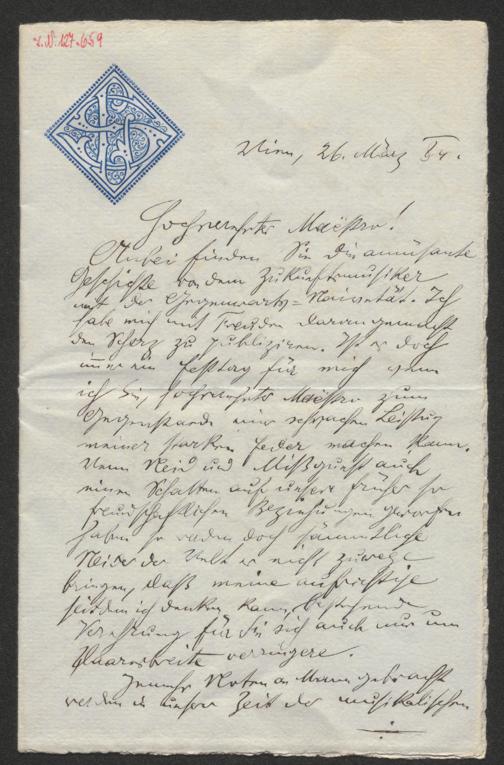 I.N. 127.659
Wien, 26. März 84.
Hochverehrter Maëstro!
Anbei finden Sie die amüsante
Geschichte von dem Zukunftsmusiker
mit der Gegenwarts=Naivetät. Ich
habe mich mit Freuden daran gemacht
den Scherz zu publiziren. Ist es doch
immer ein Festtag für mich wenn
ich Sie, hochverehrter Maëstro zum
Gegenstande einer schwachen Leistung
meiner starken Feder machen kann.
Wenn Neid und Mißgunst auch
einen Schatten auf unsere früher so
freundschaftlichen Beziehungen geworfen
haben so werden doch sämmtliche
Neider der Welt es nicht zuwege
bringen, daß meine aufrichtige
seitdem ich denken kann, bestehende
Verehrung für Sie sich auch nur um
Haaresbreite verringere.
Jemehr Noten an Mann gebracht
werden in unserer Zeit der musikalischen